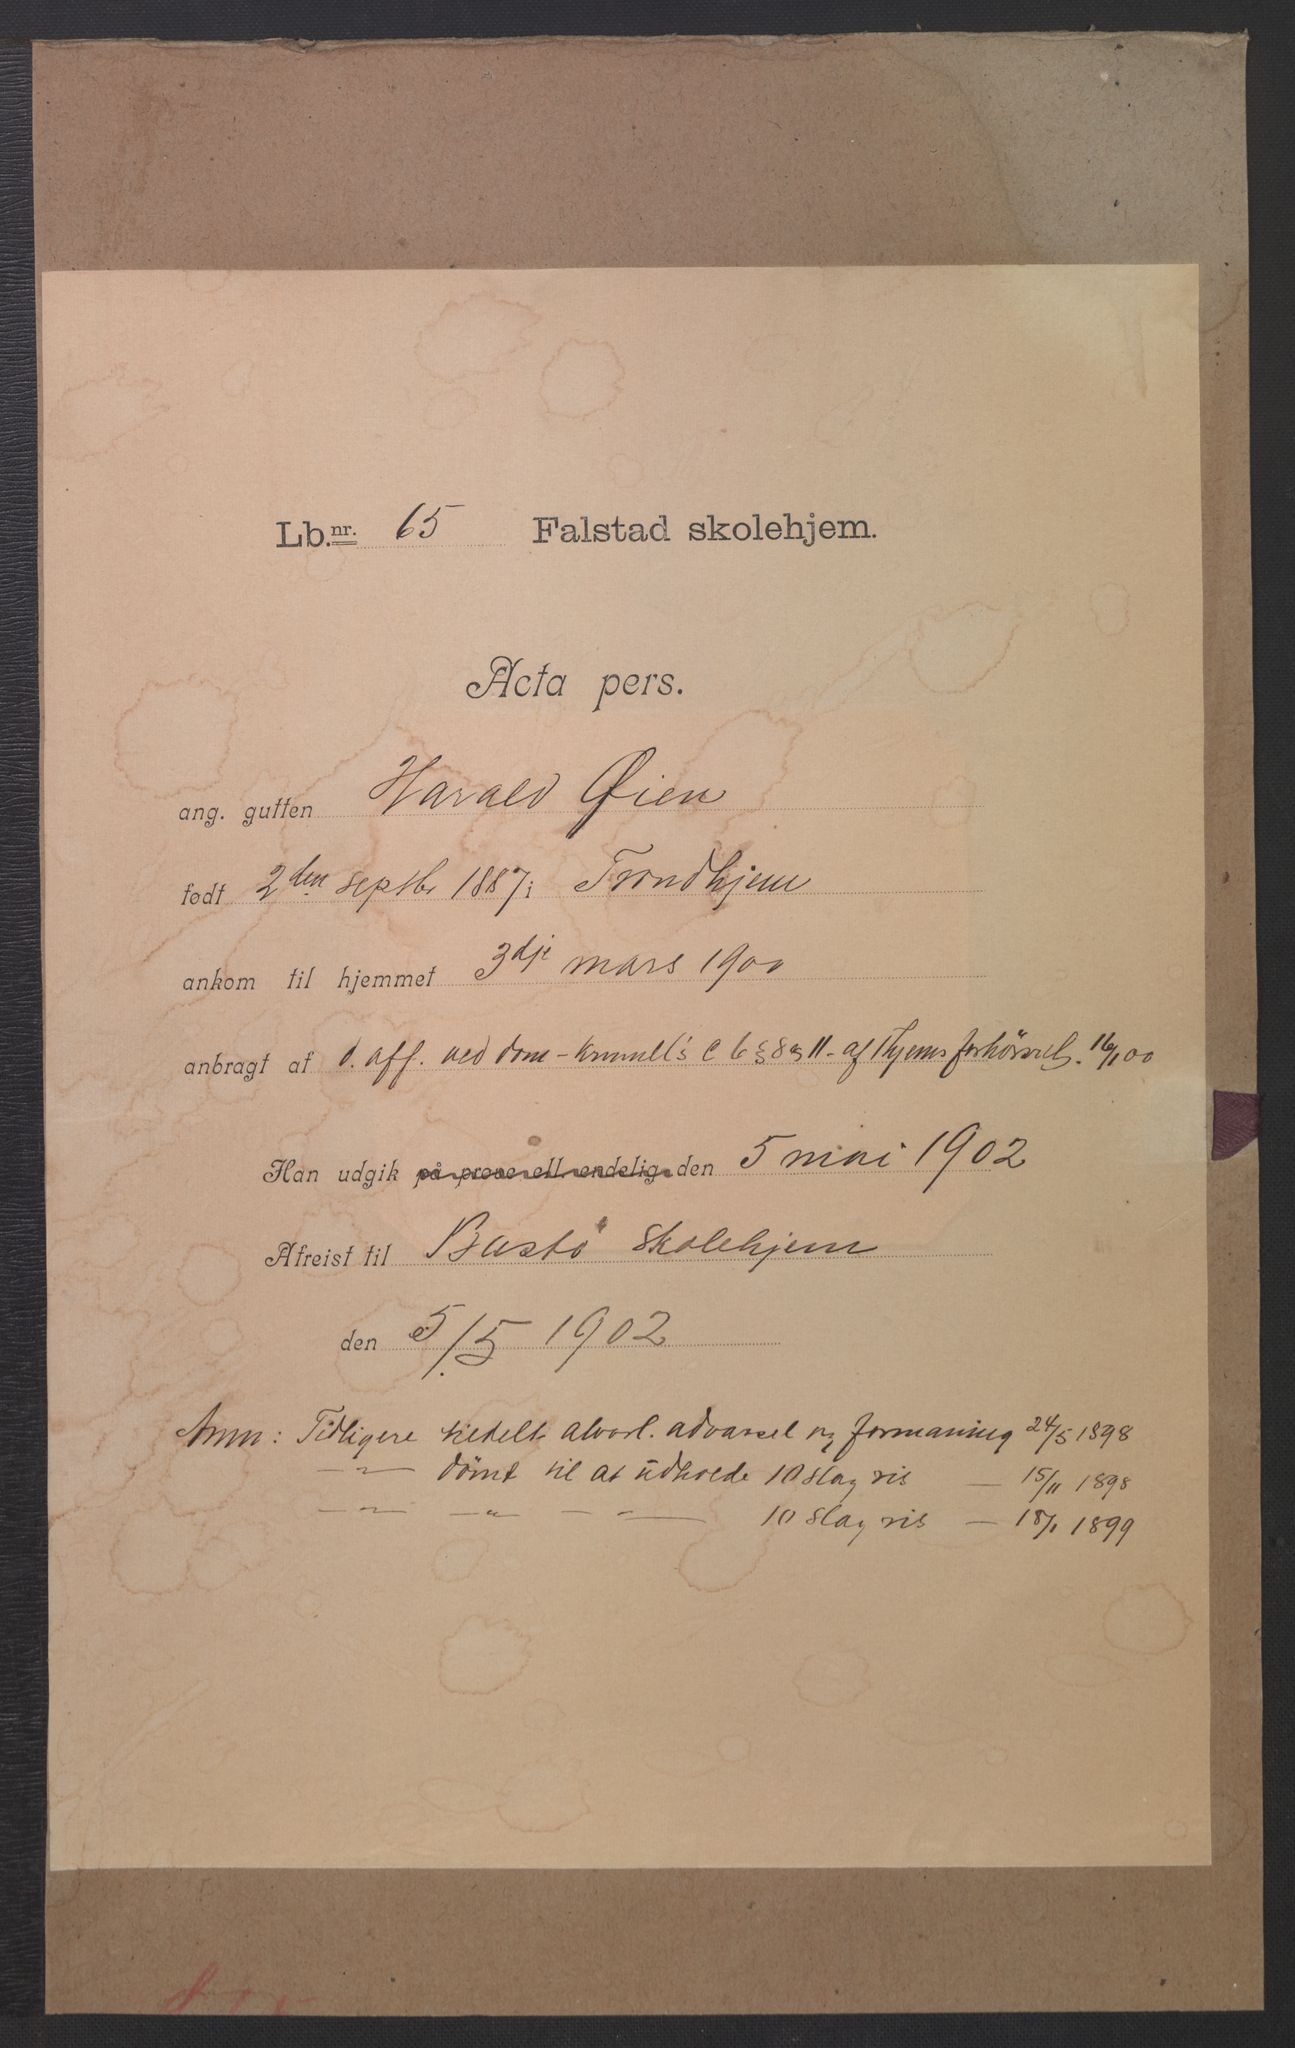 Lb.nr. 65 Falstad skolehjem.
Acta pers.
ang. gutten Harald Øien
født 2den septbr 1887 i Trondhjem
ankom til hjemmet 3dje mars 1900
anbragt af d. off. ved dom - krmnll's C 6 §§ 8 og 11 - af Thjems forhörsret. 16/1 00
Han udgik på prøve ell. endelig den 5 mai 1902
Afreist til Bastö skolehjem
den 5/5 1902
Anm: Tidligere tildelt alvorl. advarsel og formaning 24/5 1898
—„— dömt til at udholde 10 slag ris — 15/11 1898
—„— —„— —„— 10 slag ris — 18/1 1899